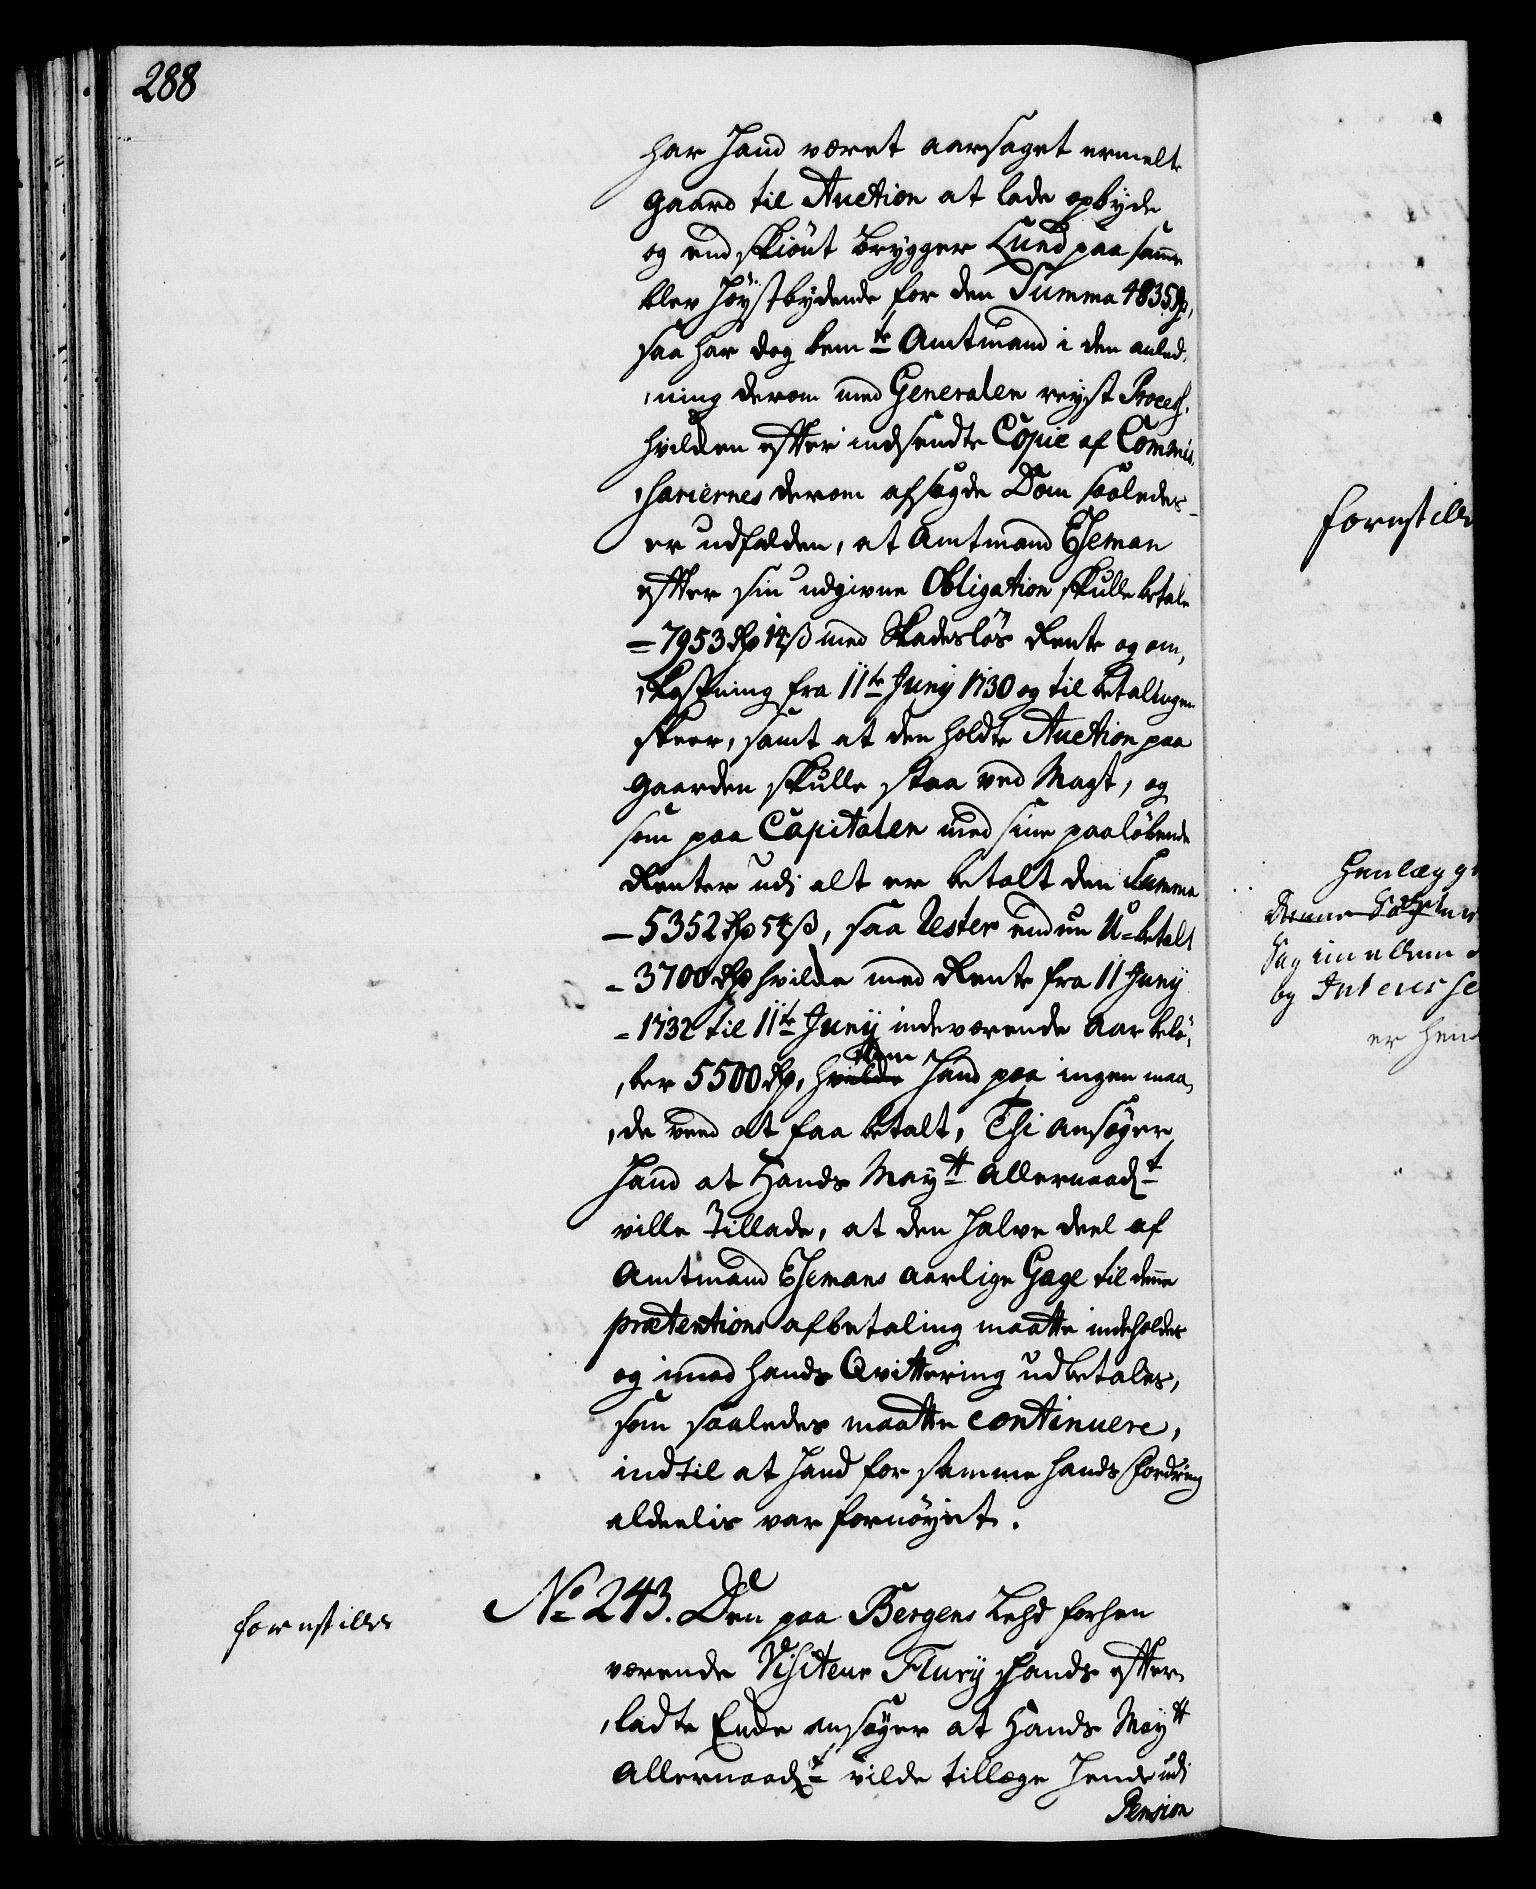 288
har hand været aarsaget ermelte
gaard til Auction at lade opbyde
og end skiönt brygger Lund paa same
blev höystbydende for den Summa 4835 Rd,
saa har dog bemte Amtmand i den anled,
,ning derom med Generalen reyst Process,
hvilken efter indsendte Copie af Commis,
,sariernes derom afsagde Dom saaledes
er udfalden, at Amtmand Eseman
efter sin udgivne Obligation skulle betale
= 7953 Rd 14 ß med skadeslös Rente og om,
,kostning fra 11te Junij 1730 og til betalingen
skeer, samt at den holdte Auction paa
gaarden skulle staa ved Magt, og
som paa Capitalen med sine paalöbende
Renter udj alt er betalt den Summa
– 5352 Rd 54 ß, saa Rester endnu U=betalt
– 3700 Rd hvilke med Rente fra 11 Junij
= 1732 til 11te Junij indeværende Aar belö,
,ber 5500 Rd, hvilke dem hand paa ingen maa,
,de veed at faa betalt, Thi ansöger
hand at Hands Maytt Allernaadt
ville tillade, at den halve deel af
Amtmand Esemans aarlige Gage til denne
prætentions afbetaling maatte indeholdes
og imod hands Qvittering udbetales,
som saaledes maatte continuere,
indtil at hand for samme hands fordring
aldeelis var fornöyet.
forestilles
No 243. Den paa Bergens forhen
værende Visiteur Flury hands efter,
,ladte Enke ansöger at Hands Maytt
Allernaadt vilde tillæge hende udj
Pension
forestille
Henlægge
Sag imellem
og Interesse
er hen